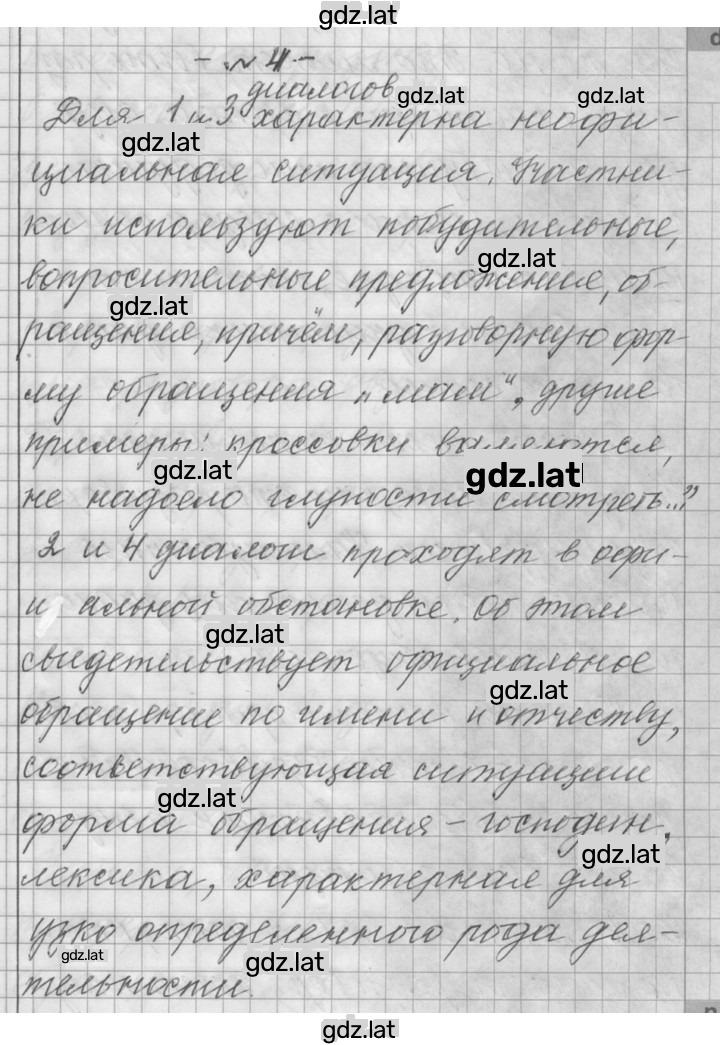 gdz.lat
- № 4 -
диалогов
Для 1 и 3 характерна неофи-
gdz.lat gdz.lat
gdz.lat
циальная ситуация. Участни-
ки используют побудительные,
gdz.lat
вопросительные предложения, об-
gdz.lat
ращения, причём, разговорную фор-
му обращения „мам“, другие
примеры: кроссовки валяются,
gdz.lat gdz.lat
не надоело глупости смотреть...?"
2 и 4 диалоги проходят в офи-
и альной обстановке. Об этом
gdz.lat
свидетельствует официальное
gdz.lat
обращение по имени и отчеству,
соответствующая ситуации
gdz.lat
форма обращения – господин,
gdz.lat
лексика, характерная для
узко определенного рода дея-
gdz.lat gdz.lat
тельности.
gdz.lat